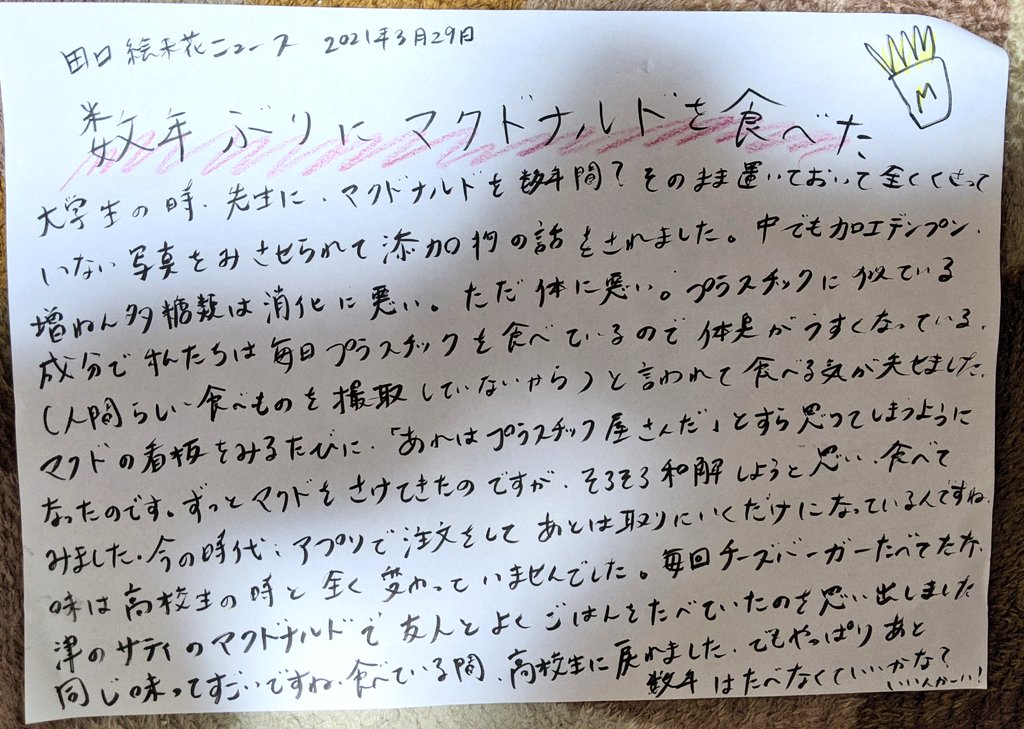 田口絵未花ニュース 2021年3月29日
M
数年ぶりにマクドナルドを食べた
大学生の時、先生に、マクドナルドを数年間?そのまま置いておいて全くくさって
いない写真をみさせられて添加物の話をされました。中でも加工デンプン、
増ねん多糖類は消化に悪い。ただ体に悪い。プラスチックに似ている
成分で私たちは毎日プラスチックを食べているので体臭がうすくなっている、
(人間らしい食べものを撮取していないから)と言われて食べる気が失せました、
マクドの看板をみるたびに、「あれはプラスチック屋さんだ」とすら思ってしまうように
なったのです。ずっとマクドをさけてきたのですが、そろそろ和解しようと思い、食べて
みました、今の時代、アプリで注文をしてあとは取りにいくだけになっているんですね、
味は高校生の時と全く変わっていませんでした。毎回チーズバーガーたべてたな、
津のサティのマクドナルドで友人とよくごはんをたべていたのを思い出しました
同じ味ってすごいですね、食べている間、高校生に戻れました、でもやっぱりあと
数年はたべなくていいかな?
いいんかーい!